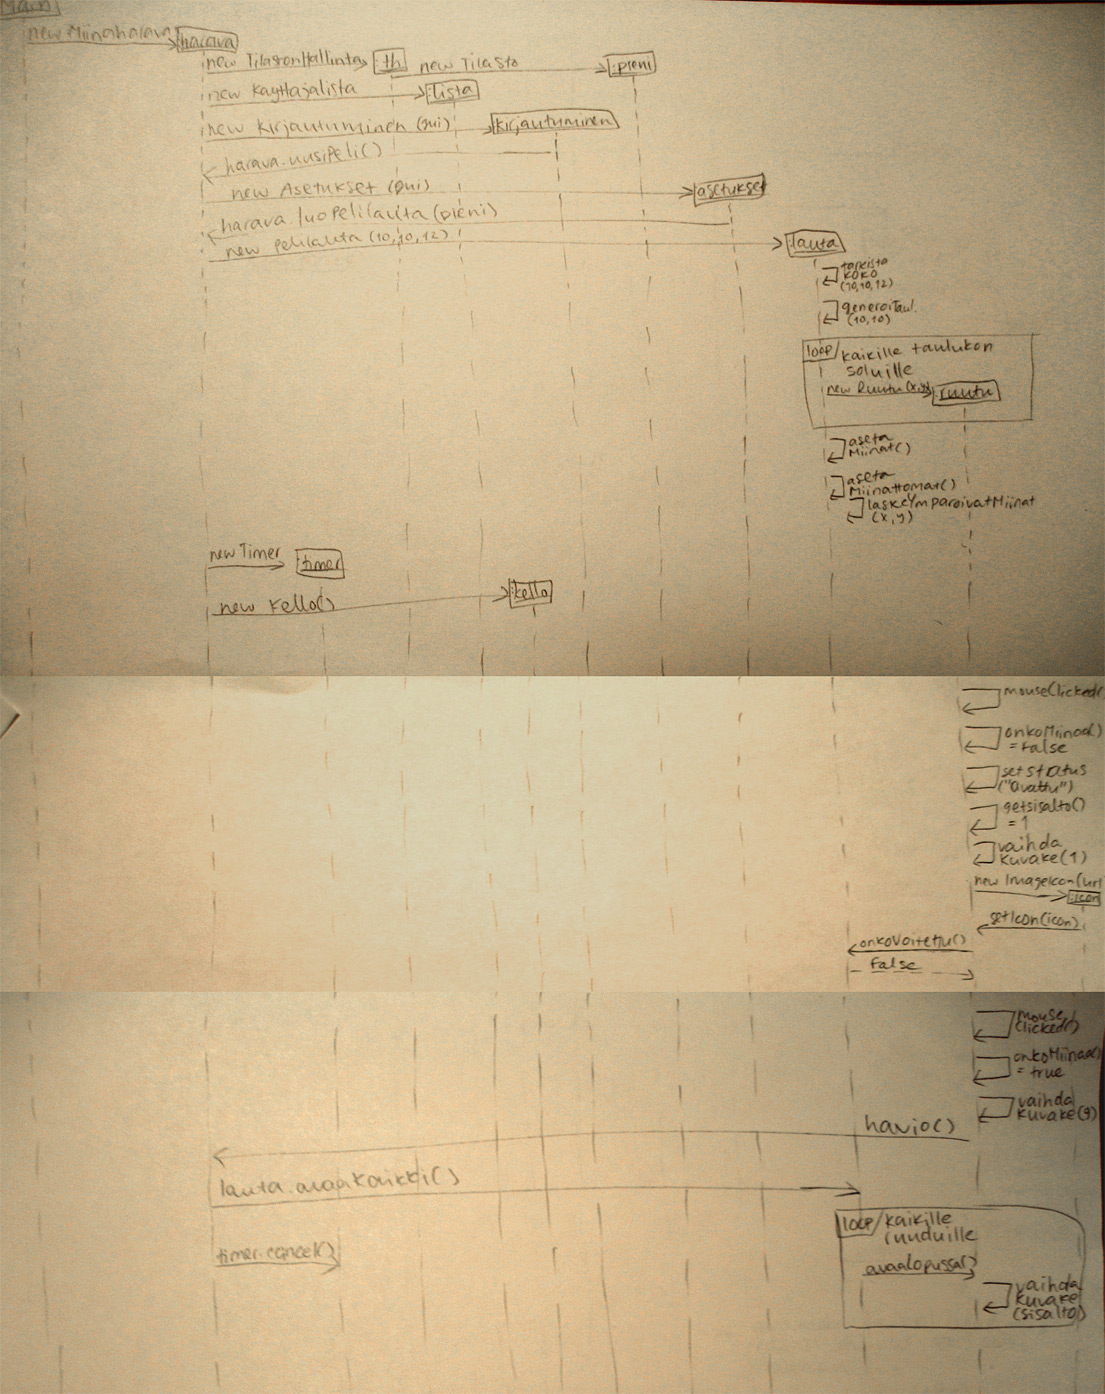 Main
new Miinaharava
:harava
new TilastonHallinta
:th
new Tilasto
:pieni
new Kayttajalista
:lista
new Kirjautuminen (gui)
kirjautuminen
harava.uusiPeli()
new Asetukset (gui)
asetukset
harava.luoPelilauta(pieni)
new Pelilauta(10,10,12)
:lauta
tarkista
koko
(10,10,12)
generoiTaul.
(10,10)
loop/kaikille taulukon
soluille
new Ruutu(x,y)
:ruutu
aseta
Miinat()
aseta
Miinattomat()
laskeYmparoivatMiinat
(x,y)
new Timer
:timer
new Kello()
:kello
mouseClicked(
onkoMiinaa()
= false
setStatus
("Avattu")
getSisalto()
= 1
vaihda
kuvake(1)
new ImageIcon(url
:icon
setIcon(icon)
onkoVoitettu()
false
mouse
Clicked()
onkoMiinaa()
= true
vaihda
kuvake(9)
havio()
lauta.avaaKaikki()
loop/kaikille
ruuduille
timer.cancel()
avaaLopussa()
vaihda
kuvake
(sisalto)